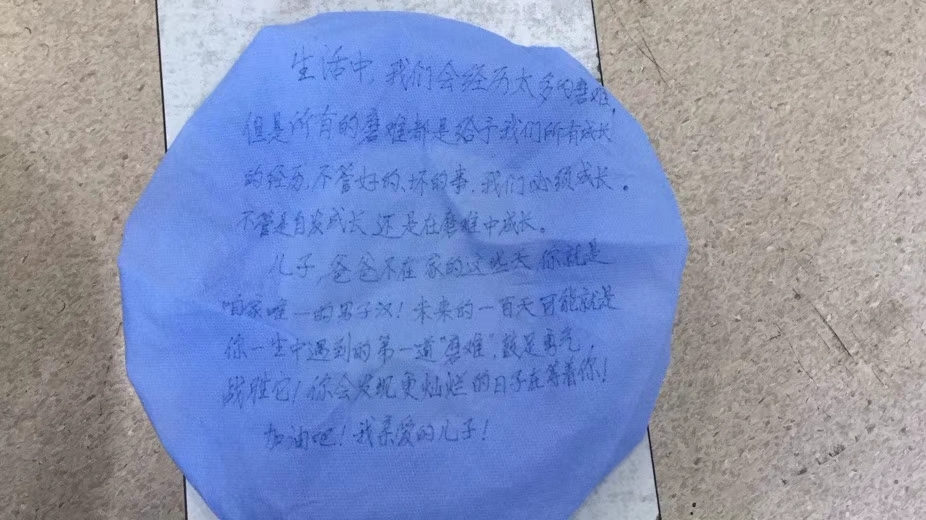 生活中，我们会经历太多的磨难，
但是所有的磨难都是给予我们所有成长
的经历，不管好的、坏的事，我们必须成长。
不管是自发成长，还是在磨难中成长。
儿子，爸爸不在家的这些天，你就是
咱家唯一的男子汉！未来的一百天可能就是
你一生中遇到的第一道“磨难”，鼓足勇气，
战胜它！你会发现更灿烂的日子在等着你！
加油吧！我亲爱的儿子！